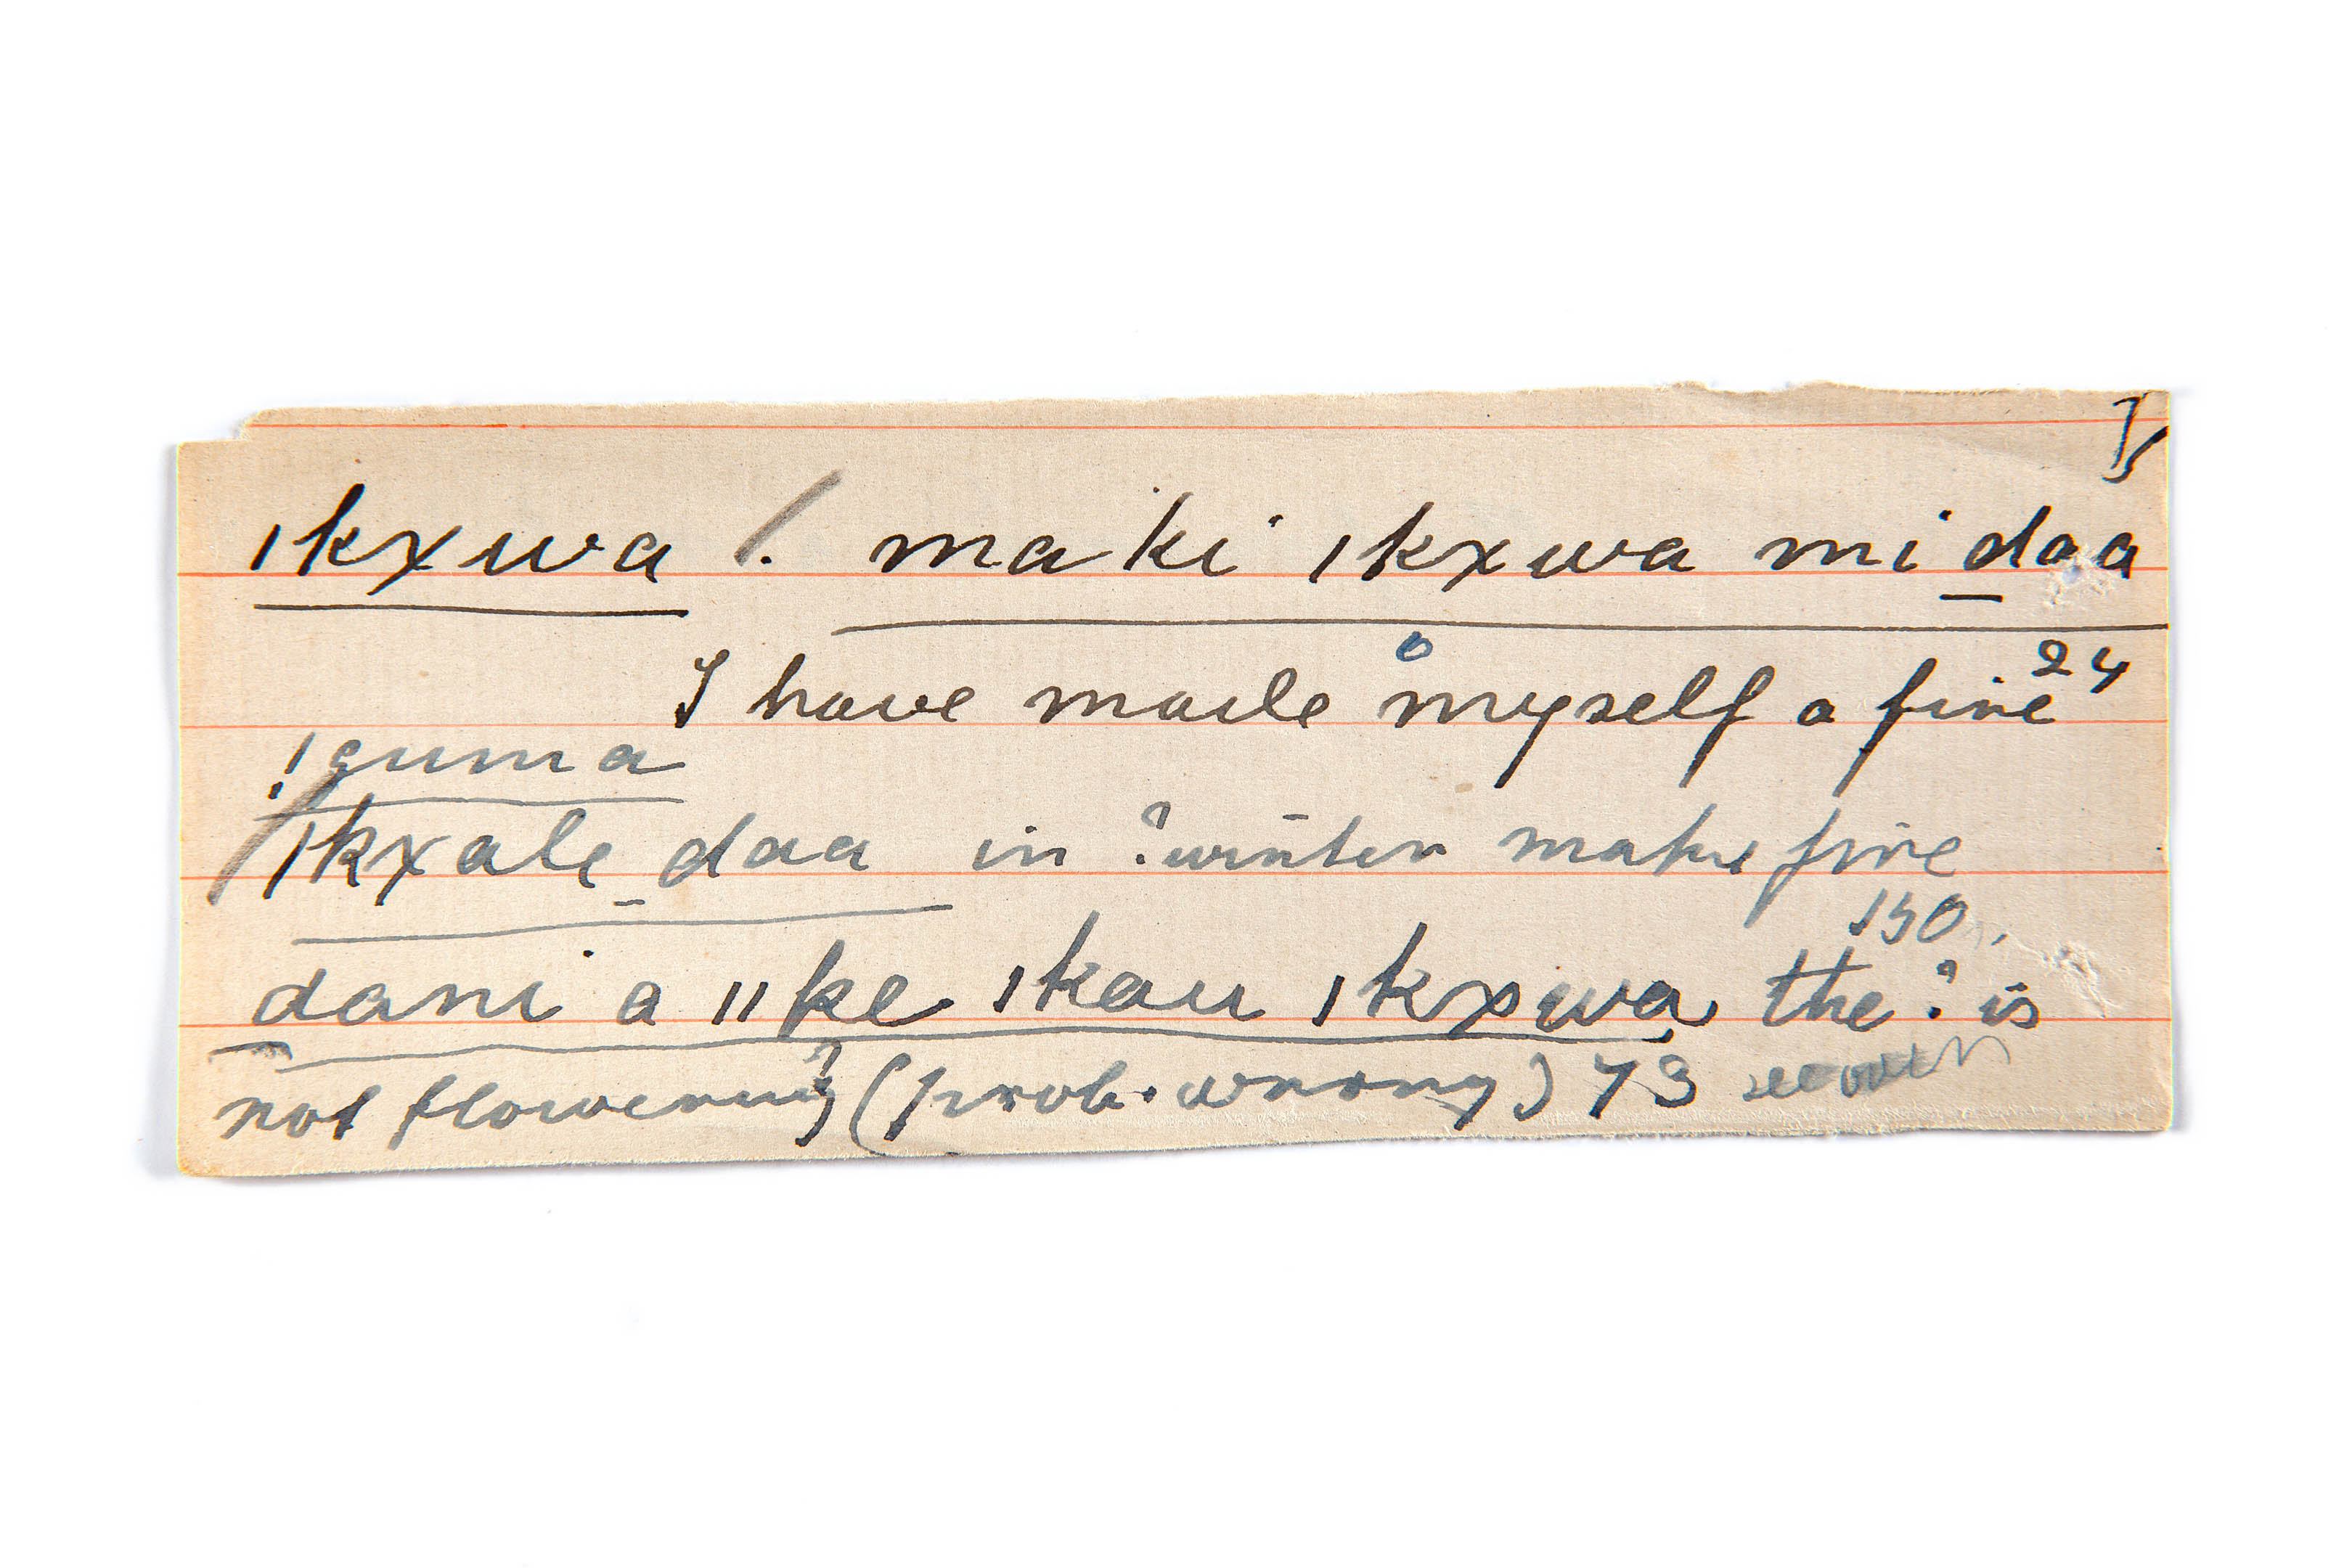 ǀkxwa /. maki ǀkxwa mi daa
I have made myself a fire 24
!guma
ǀkxale daa in ? winter make fire
150.
dani a ǁke ǀkau ǀkxwa the ? is
not flowering (prob. wrong) 73